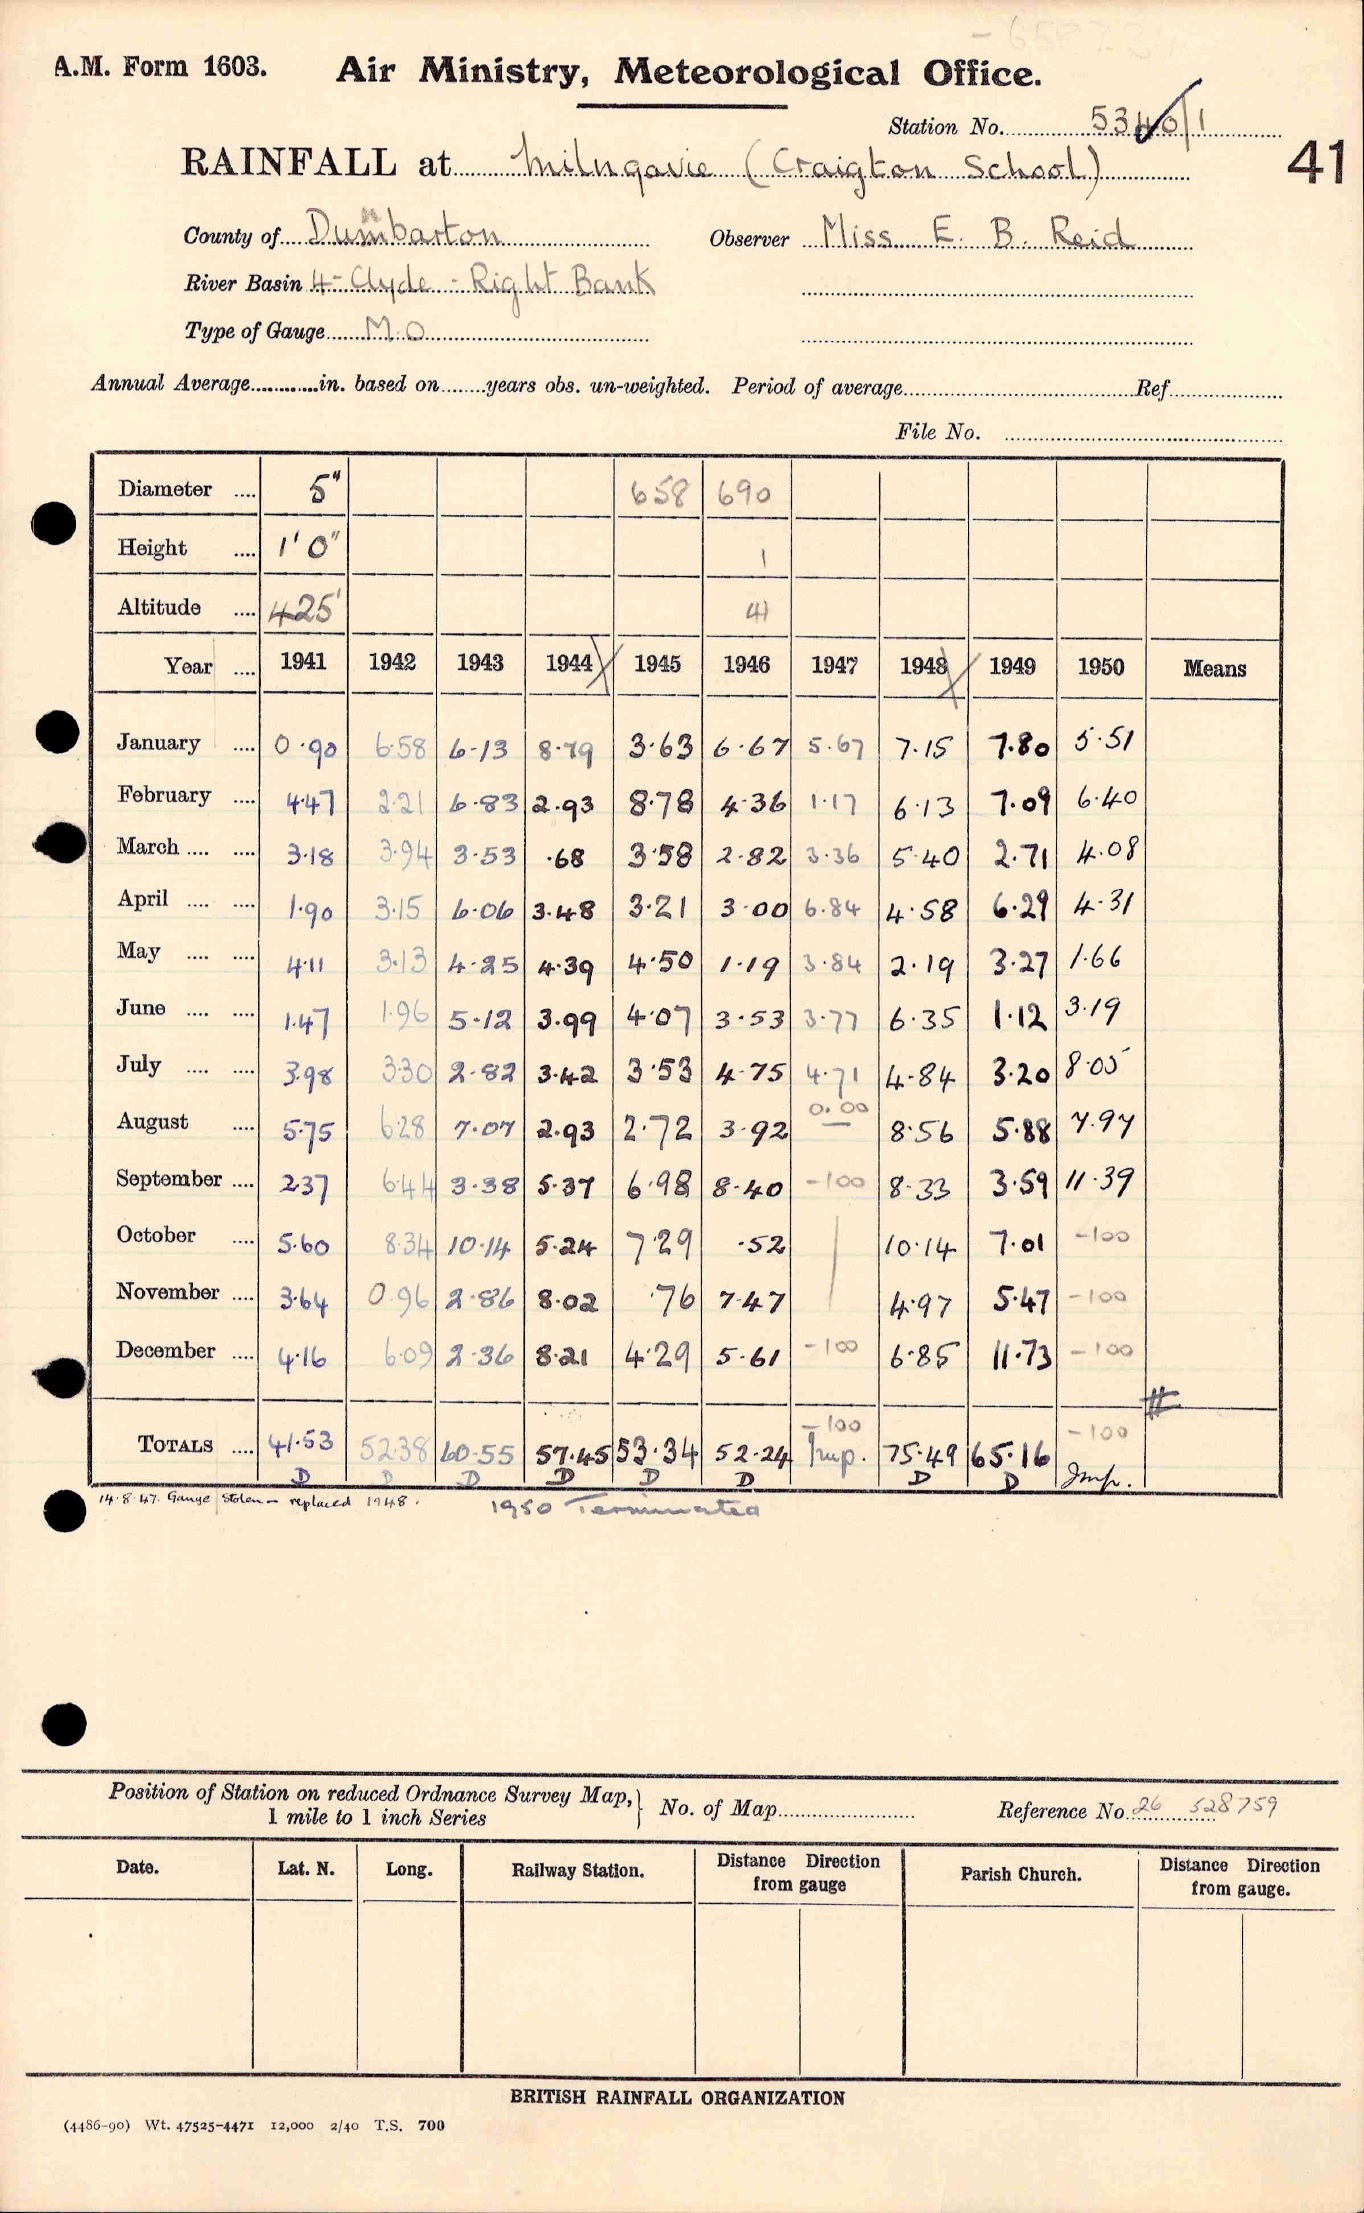 A.M. Form 1603. Air Ministry, Meteorological Office.
Station No. 5340/1
RAINFALL at Milngavie (Craigton School) 41
County of Dumbarton Observer Miss E. B. Reid
River Basin 4 - Clyde - Right Bank
Type of Gauge M.O
Annual Average in. based on years obs. un-weighted. Period of average Ref.
File No.
Diameter 5" 658 690
Height 1' 0" 1
Altitude 425' 41
Year 1941 1942 1943 1944 1945 1946 1947 1948 1949 1950 Means
January 0.90 6.58 6.13 8.79 3.63 6.67 5.67 7.15 7.80 5.51
February 4.47 2.21 6.83 2.93 8.78 4.36 1.17 6.13 7.09 6.40
March 3.18 3.94 3.53 .68 3.58 2.82 3.36 5.40 2.71 4.08
April 1.90 3.15 6.06 3.48 3.21 3.00 6.84 4.58 6.29 4.31
May 4.11 3.13 4.25 4.39 4.50 1.19 3.84 2.19 3.27 1.66
June 1.47 1.96 5.12 3.99 4.07 3.53 3.77 6.35 1.12 3.19
July 3.98 3.30 2.82 3.42 3.53 4.75 4.71 4.84 3.20 8.05
August 5.75 6.28 7.07 2.93 2.72 3.92 0.00 — 8.56 5.88 7.97
September 2.37 6.44 3.38 5.37 6.98 8.40 -100 8.33 3.59 11.39
October 5.60 8.34 10.14 5.24 7.29 .52 10.14 7.01 -100
November 3.64 0.96 2.86 8.02 .76 7.47 4.97 5.47 -100
December 4.16 6.09 2.36 8.21 4.29 5.61 -100 6.85 11.73 -100
-100 -100
TOTALS 41.53 52.38 60.55 57.45 53.34 52.24 Imp. 75.49 65.16 Imp.
D D D D D D D D
14.8.47. Gauge stolen - replaced 1948. 1950 Terminated
Position of Station on reduced Ordnance Survey Map, 1 mile to 1 inch Series } No. of Map Reference No. 26 528759
Date. Lat. N. Long. Railway Station. Distance Direction from gauge Parish Church. Distance Direction from gauge.
BRITISH RAINFALL ORGANIZATION
(4486-90) Wt. 47525-4471 12,000 2/40 T.S. 700